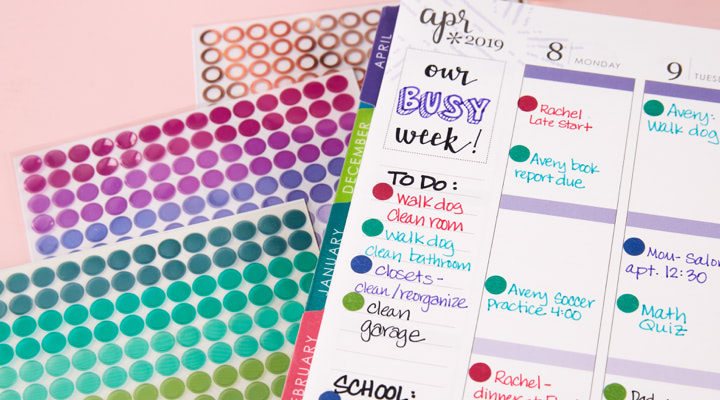 apr
*2019
our
BUSY
week!
TO DO:
walk dog
clean room
walk dog
clean bathroom
closets-
clean/reorganize
clean
garage
SCHOOL:
8 MONDAY
Rachel
Late Start
Avery book
report due
Avery soccer
practice 4:00
Rachel-
9
Avery:
walk dog
Mon-Salon
apt. 12:30
Math
Quiz
APRIL
DECEMBER
JANUARY